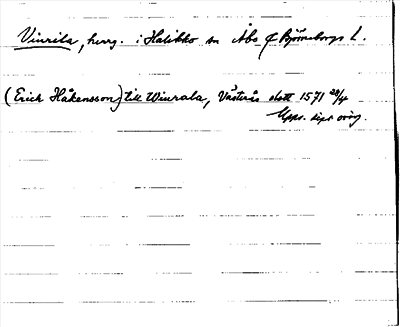 Viurila, herrg. i Halikko sn Åbo & Björneborgs l.
(Erick Håkensson) till Wiurala, Västerås slott 1571 28/4
Upps. dipl. orig.